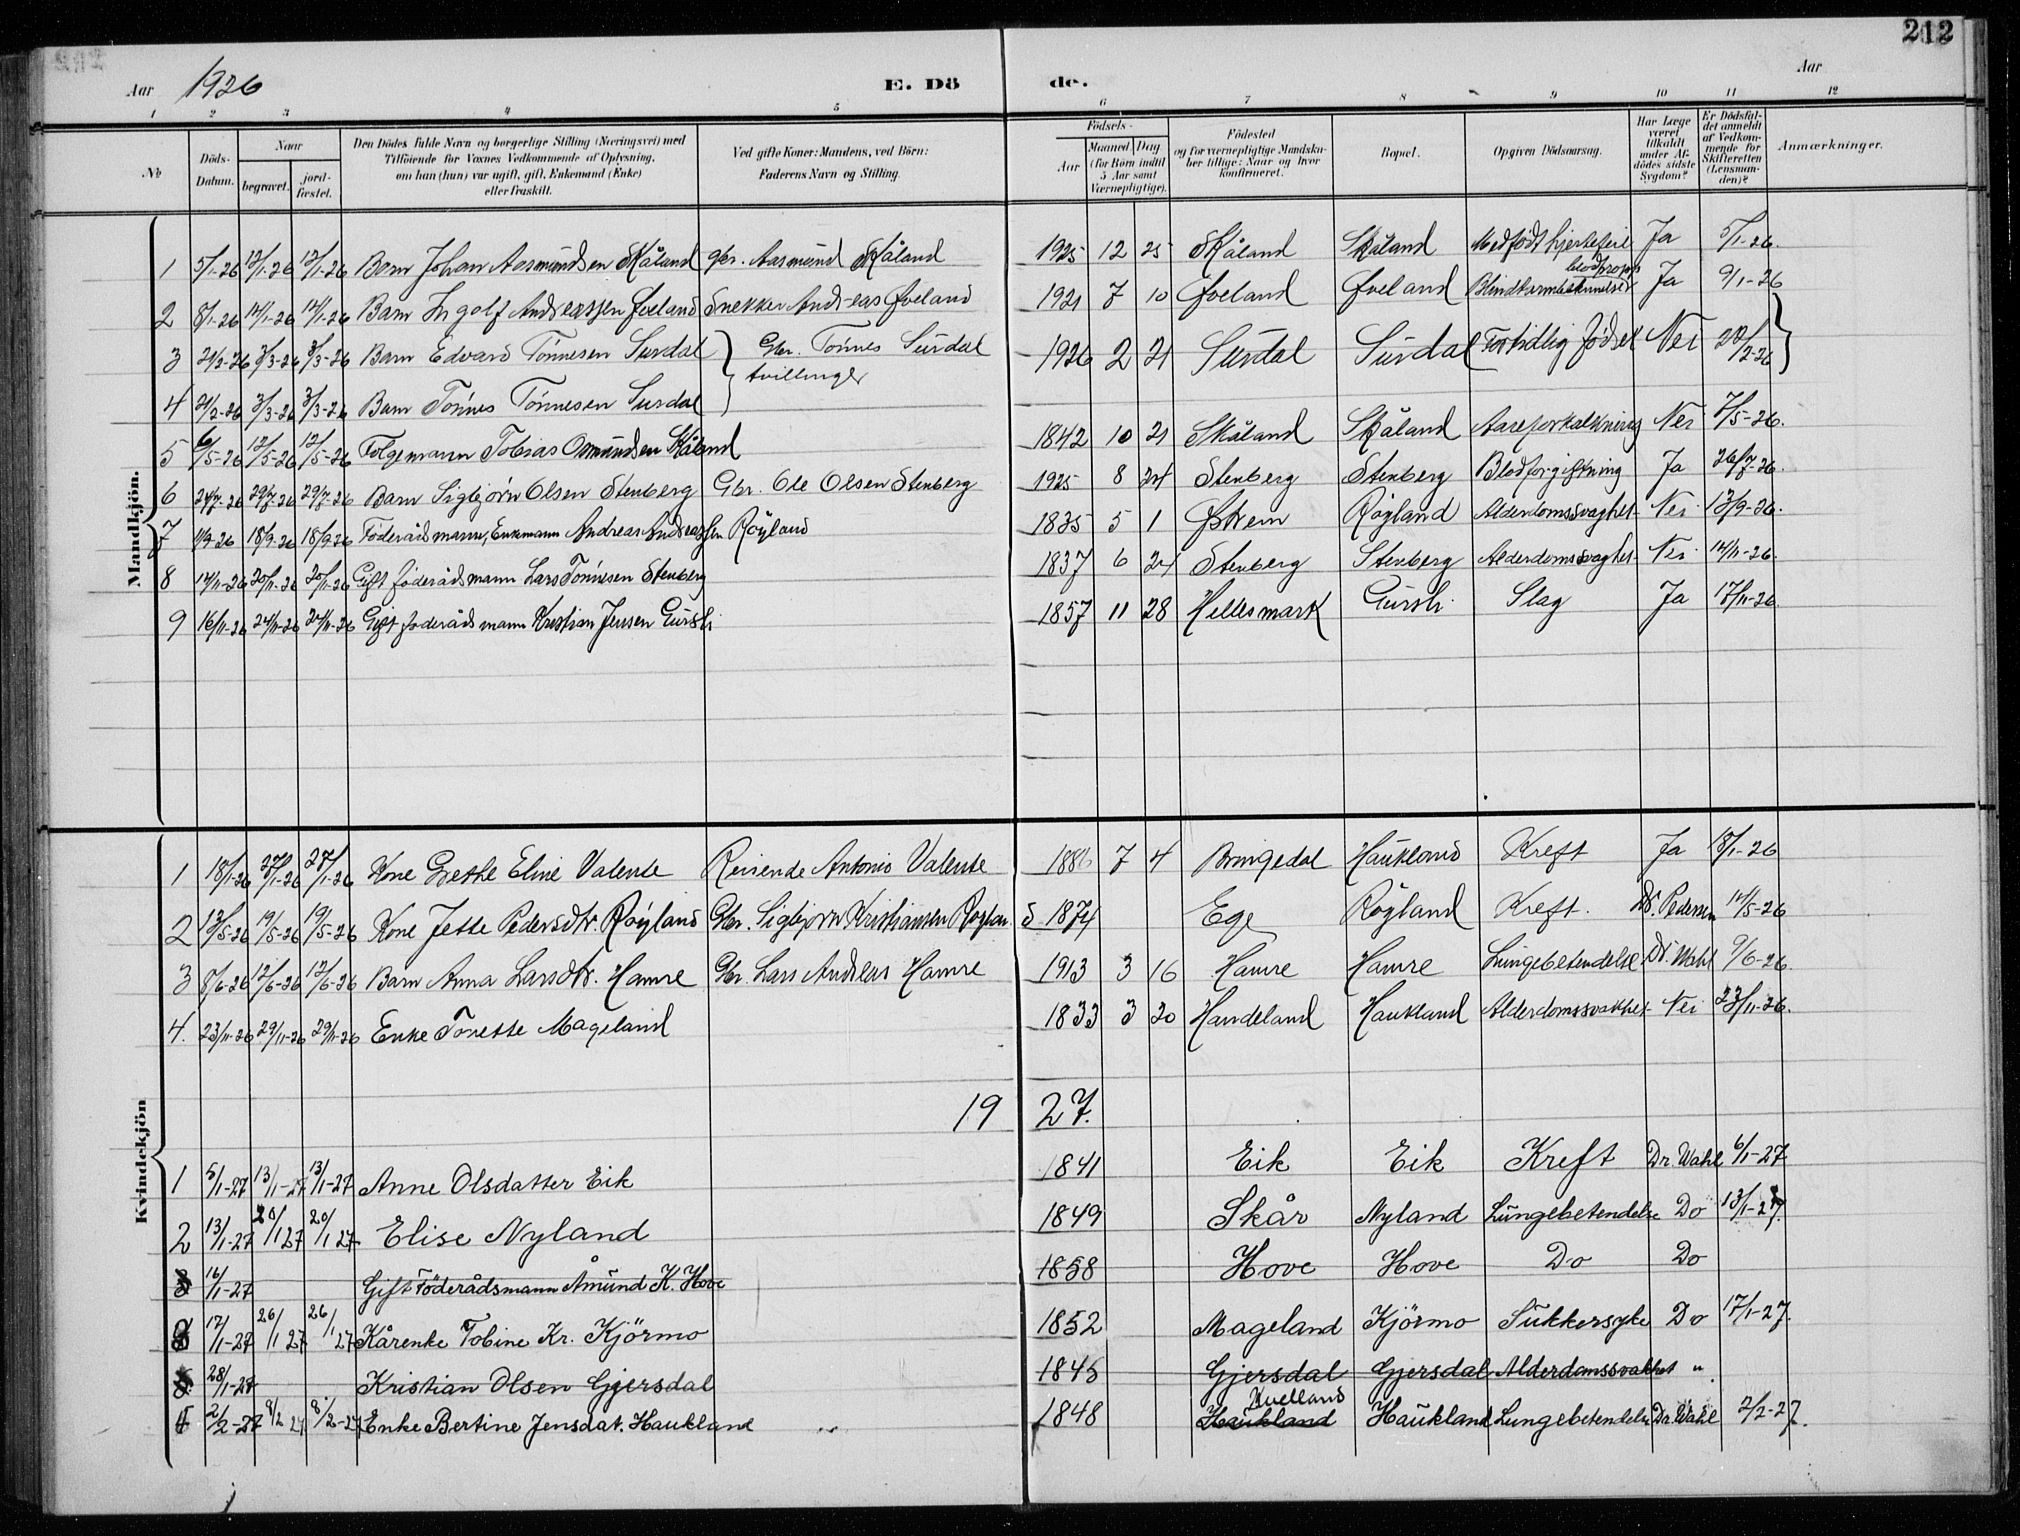 212
Aar 1926 E. Dö de. Aar
1 2 3 4 5 6 7 8 9 10 11 12
No
Döds-Datum.
Naar
begravet.
jord-fæstet.
Den Dödes fulde Navn og borgerlige Stilling (Næringsvei) med
Tilföiende for Voxnes Vedkommende af Oplysning,
om han (hun) var ugift, gift, Enkemand (Enke)
eller fraskilt.
Ved gifte Koner: Mandens, ved Börn:
Faderens Navn og Stilling.
Födsels-
Aar
Maaned Dag
(for Börn indtil
5 Aar samt
Værnepligtige).
Födested
og for værnepligtige Mandskaber tillige: Naar og hvor
konfirmeret.
Bopæl.
Opgiven Dödsaarsag.
Har Læge
været
tilkaldt
under Afdödes sidste
Sygdom?
Er Dödsfaldet anmeldt
af Vedkommende for
Skifteretten
(Lensmanden)?
Anmærkninger.
Mandkjön.
1 5/1-26 12/1-26 12/1-26 Barn Johan Aasmundsen Skåland Gbr. Aasmund Skåland 1925 12 25 Skåland Skåland Medfödt hjertefeil Ja 5/1-26.
2 8/1-26 14/1-26 14/1-26 Barn Ingolf Andreassen Øveland Snekker Andreas Øveland 1921 7 10 Øveland Øveland Blindtarmbetendelse blodpropp Ja 9/1-26
3 21/2-26 3/3-26 3/3-26 Barn Edvard Tönnesen Surdal } Gbr. Tönnes Surdal 1926 2 21 Surdal Surdal For tidlig födsel Nei 28/2-26 }
tvillinger
4 21/2-26 3/3-26 3/3-26 Barn Tönnes Tönnesen Surdal
5 6/5-26 12/5-26 12/5-26 Folgemann Tobias Osmundsen Skåland 1842 10 21 Skåland Skåland Aareforkalkning Nei 7/5-26.
6 24/7-26 29/7-26 29/7-26 Barn Sigbjörn Olsen Stenberg Gbr. Ole Olsen Stenberg 1925 8 24 Stenberg Stenberg Blodforgiftning Ja 26/7-26.
7 11/9-26 18/9-26 18/9-26 Föderådsmann, Enkmann Andreas Andreassen Röyland 1835 5 1 Östrem Röyland Alderdomssvaghet Nei 13/9-26.
8 14/11-26 20/11-26 20/11-26 Gift föderådsmann Lars Tönnesen Stenberg 1837 6 24 Stenberg Stenberg Alderdomssvaghet Nei 14/11-26.
9 16/11-26 24/11-26 24/11-26 Gift föderådsmann Kristian Jensen Gursli 1857 11 28 Hellesmark Gursli Slag Ja 17/11-26.
Kvindekjön
1 18/1-26 27/1-26 27/1-26 Kone Grethe Eline Valente Reisende Antonio Valente 1886 7 4 Bringedal Haukland Kreft Ja 18/1-26
2 13/5-26 19/5-26 19/5-26 Kone Jette Pedersdtr. Röyland Gbr. Sigbjørn Kristiansen Röyland 1874 Ege Röyland Kreft. Dr. Pedersen 14/5-26
3 8/6-26 12/6-26 12/6-26 Barn Anna Larsdtr. Hamre Gbr. Lars Andreas Hamre 1913 3 16 Hamre Hamre Lungebetendelse Dr. Wahl 9/6-26.
4. 23/11-26 29/11-26 29/11-26 Enke Tonette Mageland 1833 3 20 Handeland Haukland Alderdomssvakhet Nei 23/11-26.
1927.
1 5/1-27 13/1-27 13/1-27 Anne Olsdatter Eik 1841 Eik Eik Kreft Dr. Wahl 6/1-27
2 13/1-27 20/1 27 20/1 27 Elise Nyland 1849 Skår Nyland Lungebetendelse Do 13/1-27.
3 16/1-27 Gift Föderådsmann Åmund K. Hove 1858 Hove Hove Do Do
17/1-27 26/1 27 26/1 27 Kårenke Tobine Kr. Kjörmo 1852 Mageland Kjörmo Sukkersyke Do 17/1-27.
5. 28/1-27 Kristian Olsen Gjersdal 1845 Gjersdal Gjersdal Alderdomssvakhet "
2/2-27 8/2 27 8/2-27 Enke Bertine Jensdat. Haukland 1848 Haukland Kvelland Haukland Lungebetendelse Dr. Wahl 2/2-27.